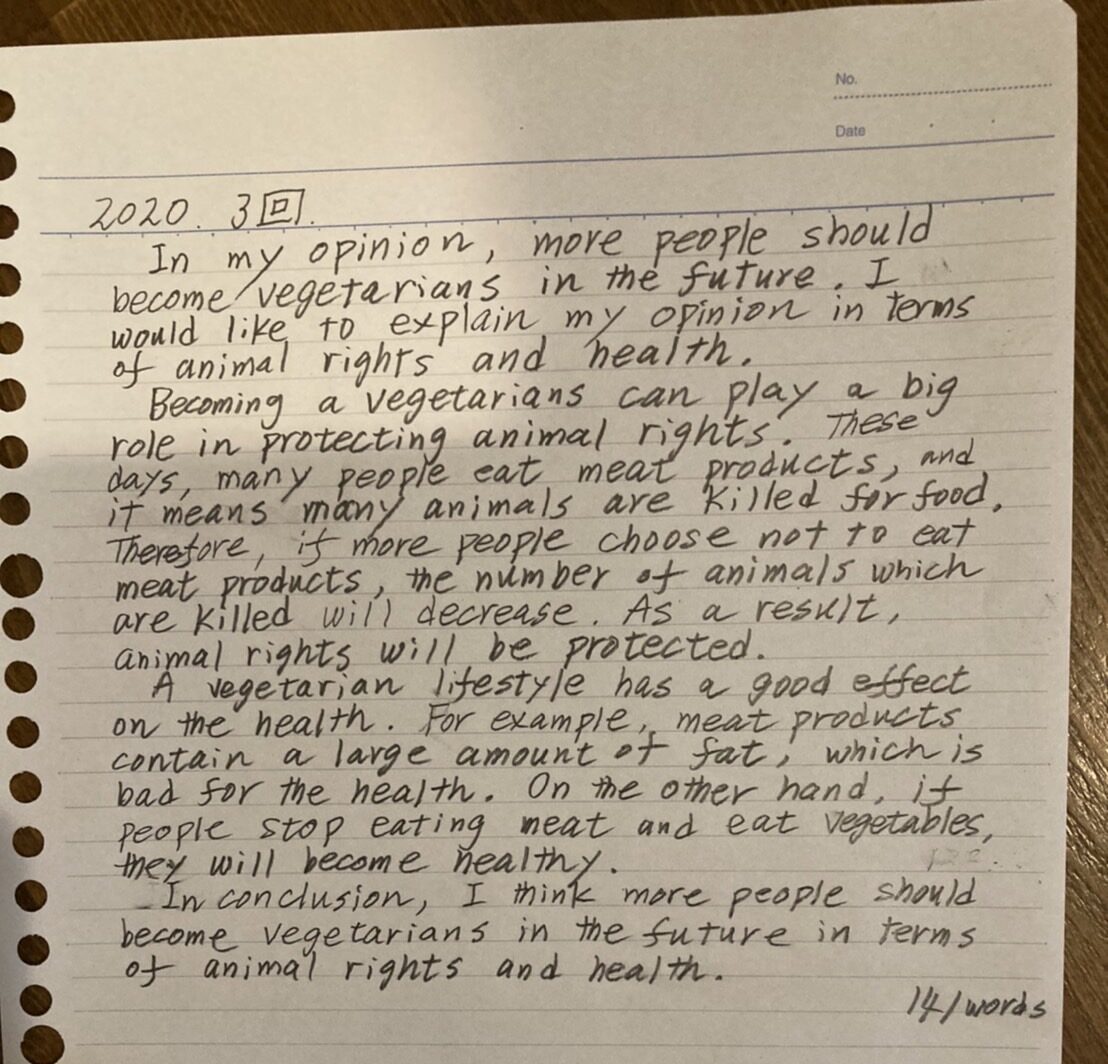 No.
Date
2020. 3回.
In my opinion, more people should
become vegetarians in the future. I
would like to explain my opinion in terms
of animal rights and health.
Becoming a vegetarians can play a big
role in protecting animal rights. These
days, many people eat meat products, and
it means many animals are killed for food.
Therefore, if more people choose not to eat
meat products, the number of animals which
are killed will decrease. As a result,
animal rights will be protected.
A vegetarian lifestyle has a good effect
on the health. For example, meat products
contain a large amount of fat, which is
bad for the health. On the other hand, if
people stop eating meat and eat vegetables,
they will become healthy.
In conclusion, I think more people should
become vegetarians in the future in terms
of animal rights and health.
141 words